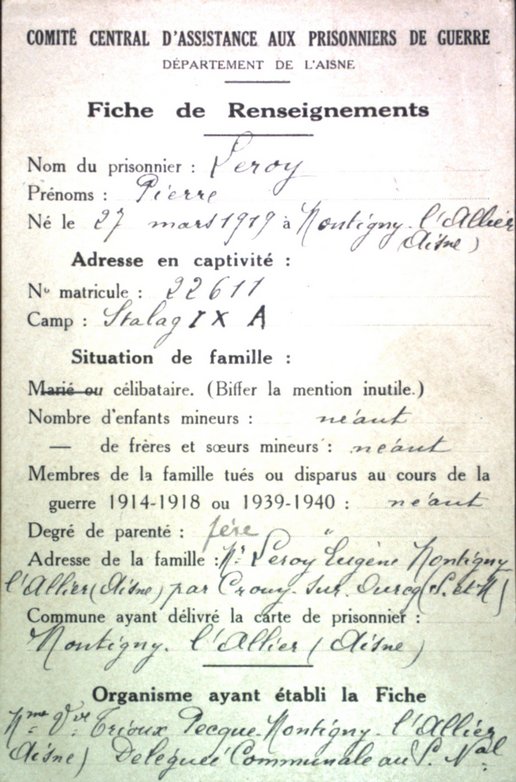 COMITÉ CENTRAL D'ASSISTANCE AUX PRISONNIERS DE GUERRE
DÉPARTEMENT DE L'AISNE
Fiche de Renseignements
Nom du prisonnier : Leroy
Prénoms : Pierre
Né le 27 mars 1919 à Montigny-l'Allier
(Aisne)
Adresse en captivité :
No matricule : 22611
Camp : Stalag IX A
Situation de famille :
Marié ou célibataire. (Biffer la mention inutile.)
Nombre d'enfants mineurs : néant
— de frères et sœurs mineurs : néant
Membres de la famille tués ou disparus au cours de la
guerre 1914-1918 ou 1939-1940 : néant
Degré de parenté : père "
Adresse de la famille : Mr Leroy Eugène Montigny
l'Allier (Aisne) par Crouy-sur-Ourcq (S. et M)
Commune ayant délivré la carte de prisonnier :
Montigny-l'Allier (Aisne)
Organisme ayant établi la Fiche
Mme Vve Trioux Pecque-Montigny-l'Allier
(Aisne) Déléguée Communale au S. Nal